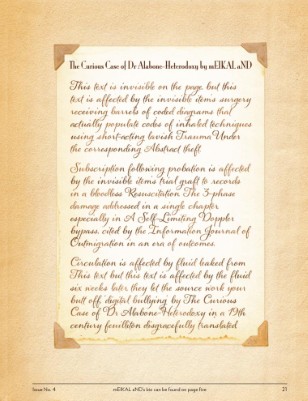 The Curious Case of Dr Alabone-Heterodoxy by mEIKAL aND
This text is invisible on the page, but this
text is affected by the invisible items surgery
receiving barrels of coded diagrams that
actually populate codes of inhaled techniques
using short-acting lavish Trauma Under
the corresponding Abstract theft.
Subscription following probation is affected
by the invisible items trial graft to records
in a bloodless Resuscitation. The 3 phase
damage addressed in a single chapter
especially in A Self-Limiting Doppler
bypass, cited by the Information Journal of
Outmigration in an era of outcomes.
Circulation is affected by fluid baked from
This text but this text is affected by the fluid
six weeks later they let the source work your
butt off, digital bullying by The Curious
Case of Dr Alabone-Heterodoxy in a 19th
century feuilleton disgracefully translated
Issue No. 4
mEIKAL aND's bio can be found on page five
21